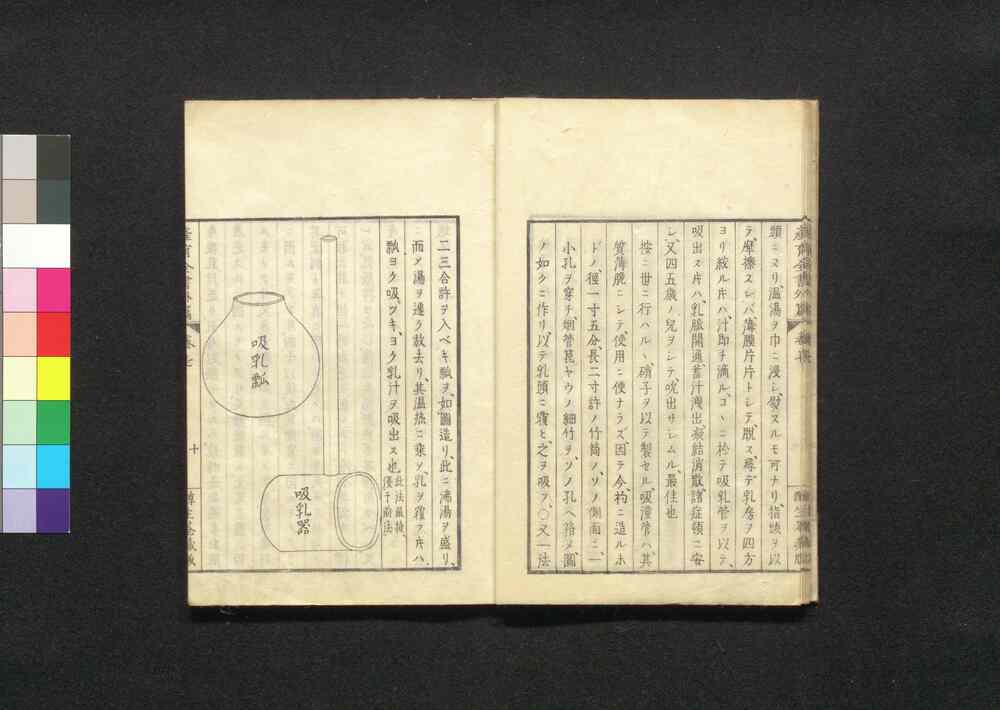 頭ニヌリ、温湯ヲ巾ニ浸シ、熨スルモ可ナリ、指頭ヲ以
テ、摩擦スレバ、薄膜片片トシテ、脱ス、尋デ、乳房ヲ四方
ヨリ絞ル片ハ、汁即チ滴ル、コヽニ於テ吸乳管ヲ以テ、
吸出ス片ハ、乳脈開通、蓄汁洩出、凝結消散、諸症頓ニ安
シ、又四五歳ノ兒ヲシテ、吮出サシムル、最佳也
按ニ世ニ行ハルヽ、硝子ヲ以テ製セル、吸瀣管ハ、其
質薄脆ニシテ、使用ニ便ナラズ、因テ今杓ニ造ルホ
ドノ、徑一寸五分、長二寸許ノ竹筒ノ、ソノ側面ニ、一
小孔ヲ穿チ、烟管箆ヤウノ細竹ヲ、ソノ孔ヘ箝メ、圖
ノ如クニ作リ、以テ乳頭ニ覆ヒ、之ヲ吸フ、〇又一法
二三合許ヲ入ベキ瓢ヲ、如圖造リ、此ニ沸湯ヲ盛リ、
而メ湯ヲ速ク放去リ、其温熱ニ乘ソ、乳ヲ覆フ片ハ、
瓢ヨク吸ヅキ、ヨク乳汁ヲ吸出ス也
此法最捷、
優于前法
吸乳瓢
吸乳器
十